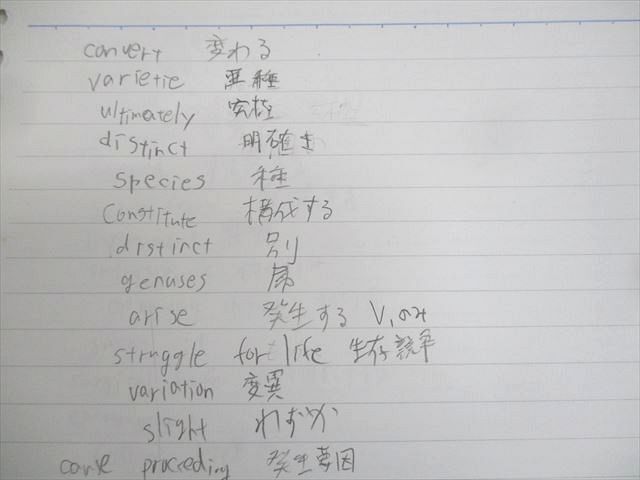 convert 変わる
varietie 亜種
ultimately 究極
distinct 明確
species 種
constitute 構成する
distinct 別
genuses 属
arise 発生する V,のみ
struggle for life 生存競争
variation 変異
slight わずか
proceeding 発生要因